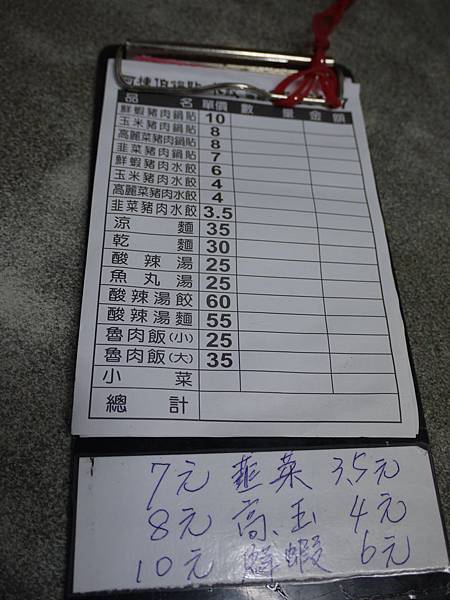 品名 單價 數量 金額
鮮蝦豬肉鍋貼 10
玉米豬肉鍋貼 8
高麗菜豬肉鍋貼 8
韭菜豬肉鍋貼 7
鮮蝦豬肉水餃 6
玉米豬肉水餃 4
高麗菜豬肉水餃 4
韭菜豬肉水餃 3.5
涼麵 35
乾麵 30
酸辣湯 25
魚丸湯 25
酸辣湯餃 60
酸辣湯麵 55
魯肉飯(小) 25
魯肉飯(大) 35
小菜
總計
7元 韮菜 3.5元
8元 高.玉 4元
10元 鮮蝦 6元